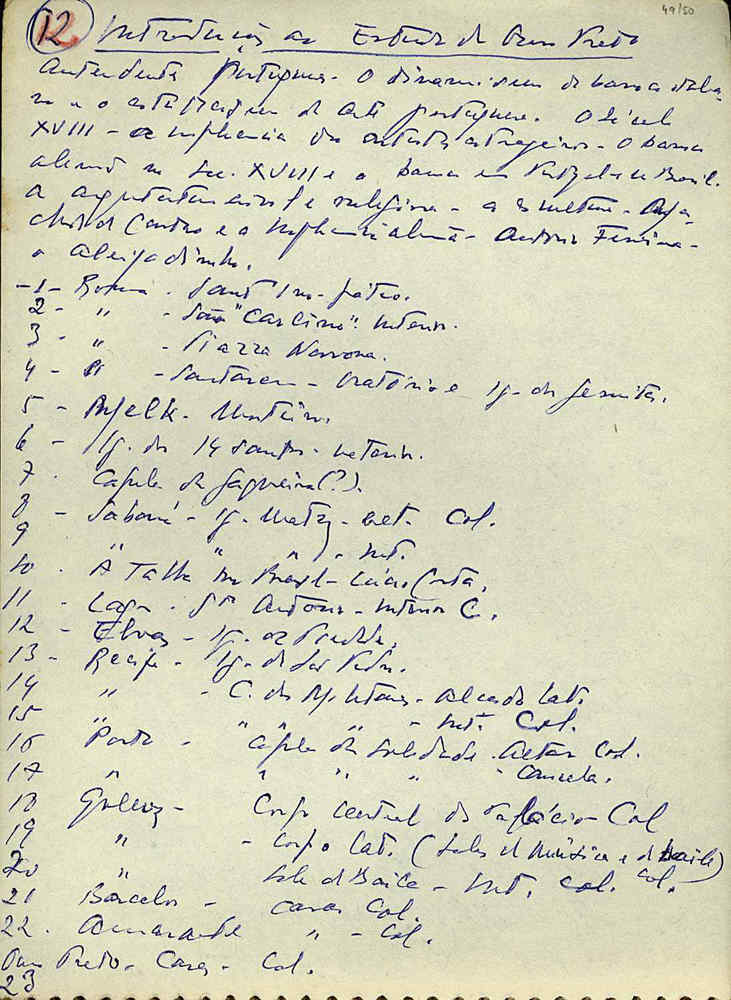 49/50
12 Introdução ao Estudo de Ouro Preto
Antecedentes portugueses - O dinamismo do barroco italia-
no e o da arte portuguesa. O século
XVIII - a influencia dos artistas estrangeiros - O barroco
alemão no Sec. XVIII e o barroco em Portugal e no Brasil.
a arquitetura civil e religiosa - a escultura - Ma-
chado de Castro e a influencia alemã - Antonio Ferreira -
o Aleijadinho.
-1- Roma - Sant'Ivo - pátio.
2 - " - San "Carlino". Interior.
3 - " - Piazza Navona.
4 - " - Santarem - Oratório e Ig. dos Jesuitas.
5 - Melk - Mosteiro.
6 - Ig. dos 14 Santos - interior.
7 - Capela da Fagueira (?).
8 - Sabará - Ig. Matriz - ext. Col.
9 " " " - int.
10 - A Talha no Brasil - Lúcio Costa.
11 - Lagos - Sto Antonio - Interior C.
12 - Elvas - Ig. da Piedade.
13 - Recife - Ig. de São Pedro.
14 " - C. dos Militares - lat.
15 " " " " - int. Col.
16 Porto - Capela da Soledade. Altar Col.
17 " " " " - Cancela.
18 Queluz - Corpo central do Palácio - Col
19 " - Corpo lat. (Salas de Música e de Baile) Col.
20 " Sala de Baile - Int. Col.
21 Barcelos - casas Col.
22. Amarante " - Col.
Ouro Preto - Casas - Col.
23